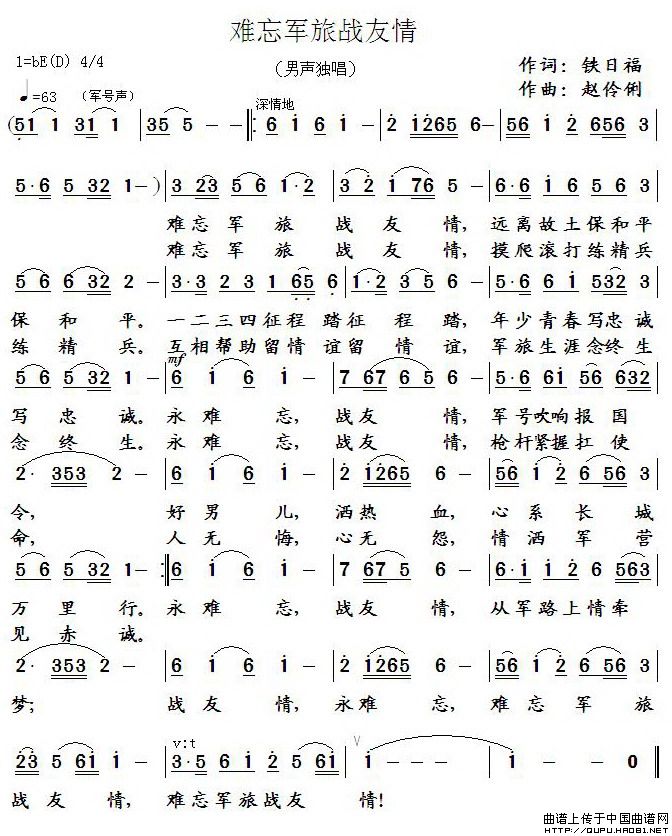 难忘军旅战友情
1=bE(D) 4/4
(男声独唱)
作词：铁日福
♩=63 (军号声)
作曲：赵伶俐
深情地
(51 1 31 1 | 35 5 - - ‖: 6 i 6 i - | 2 i265 6 - | 56 i 2 6 56 3 |
5·6 5 32 1 -) | 3 23 5 6 1·2 | 3 2 i 76 5 - | 6·6 i 6 5 6 3 |
难忘军旅 战友情，远离故土保和平
难忘军旅 战友情，摸爬滚打练精兵
5 6 6 32 1 - | 3·3 2 3 1 65 6 | 1·2 3 5 6 - | 5·6 6 i 532 3 |
保和平。一二三四征程踏征程踏，年少青春写忠诚
练精兵。互相帮助留情谊留情谊，军旅生涯念终生
mf
5 6 5 32 1 - | 6 i 6 i - | 7 67 6 5 6 - | 5·6 6i 5 6 632 |
写忠诚。永难忘，战友情，军号吹响报国
念终生。永难忘，战友情，枪杆紧握扛使
2· 353 2 - | 6 i 6 i - | 2 i265 6 - | 56 i 2 6 56 5 |
令，好男儿，洒热血，心系长城
命，人无悔，心无怨，情洒军营
5 6 5 32 1 - :‖ 6 i 6 i - | 7 67 5 6 - | 6·i i 2 6 563 |
万里行。永难忘，战友情，从军路上情牵
见赤诚。
2· 353 2 - | 6 i 6 i - | 2 i265 6 - | 56 i 2 6 56 3 |
梦；战友情，永难忘，难忘军旅
v:t V
23 5 6i i - | 3·5 6 i 2 5 6i | i - - - | i - - 0 ‖
战友情，难忘军旅战友情！
曲谱上传于中国曲谱网
HTTP://QUPU.HAO81.NET